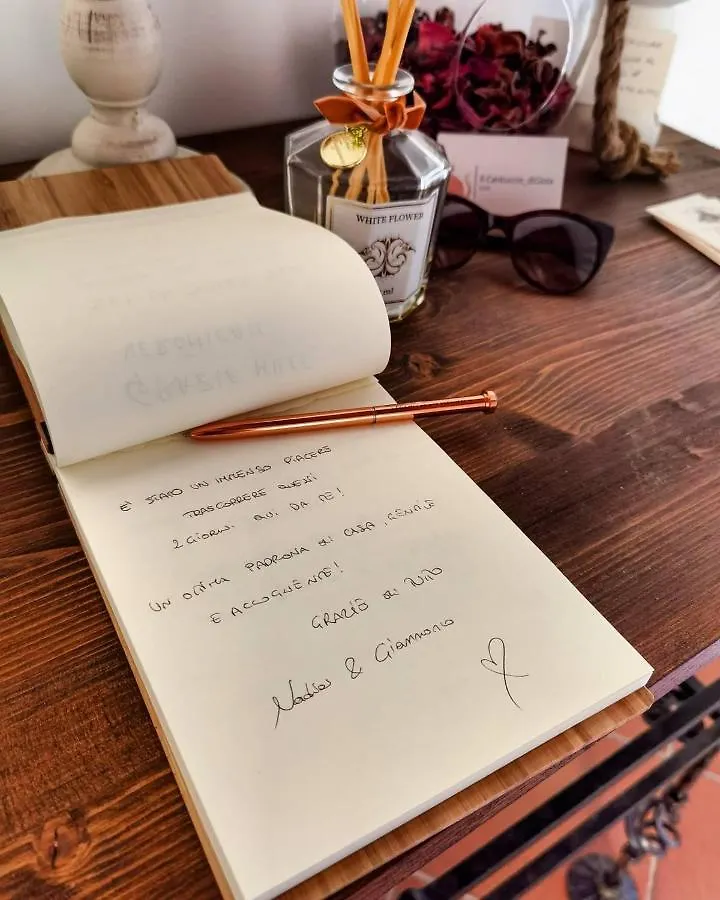 WHITE FLOWER
ml
Il Cantuccio_diGioia
È STATO UN IMMENSO PIACERE
TRASCORRERE QUESTI
2 GIORNI QUI DA TE!
UN OTTIMA PADRONA DI CASA, GENTILE
E ACCOGLIENTE!
GRAZIE DI TUTTO
Nadia & Gianmarco